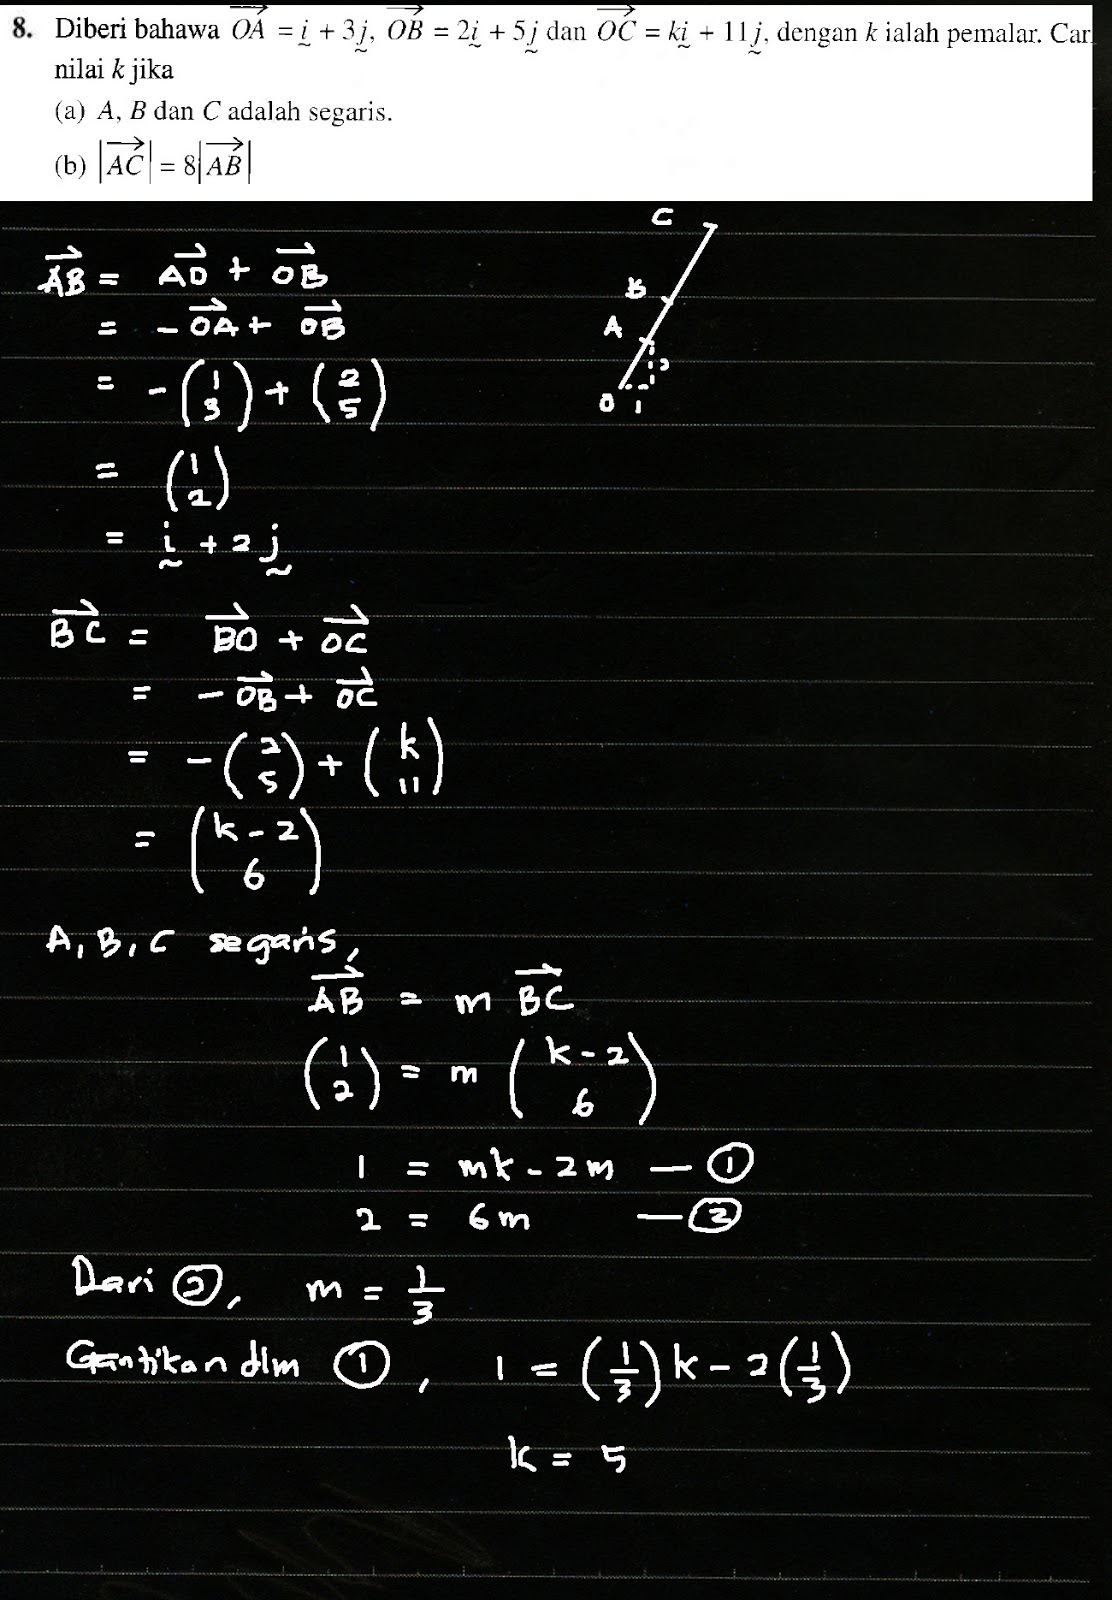 8. Diberi bahawa OA = i + 3j, OB = 2i + 5j dan OC = ki + 11j, dengan k ialah pemalar. Cari
nilai k jika
(a) A, B dan C adalah segaris.
(b) |AC| = 8|AB|
C
B
A
3
O 1
AB = AO + OB
= -OA + OB
= -(1 3) + (2 5)
= (1 2)
= i + 2j
BC = BO + OC
= -OB + OC
= -(2 5) + (k 11)
= (k-2 6)
A, B, C segaris,
AB = m BC
(1 2) = m (k-2 6)
1 = mk - 2m — ①
2 = 6m — ②
Dari ②, m = 1/3
Gantikan dlm ①, 1 = (1/3)k - 2(1/3)
k = 5